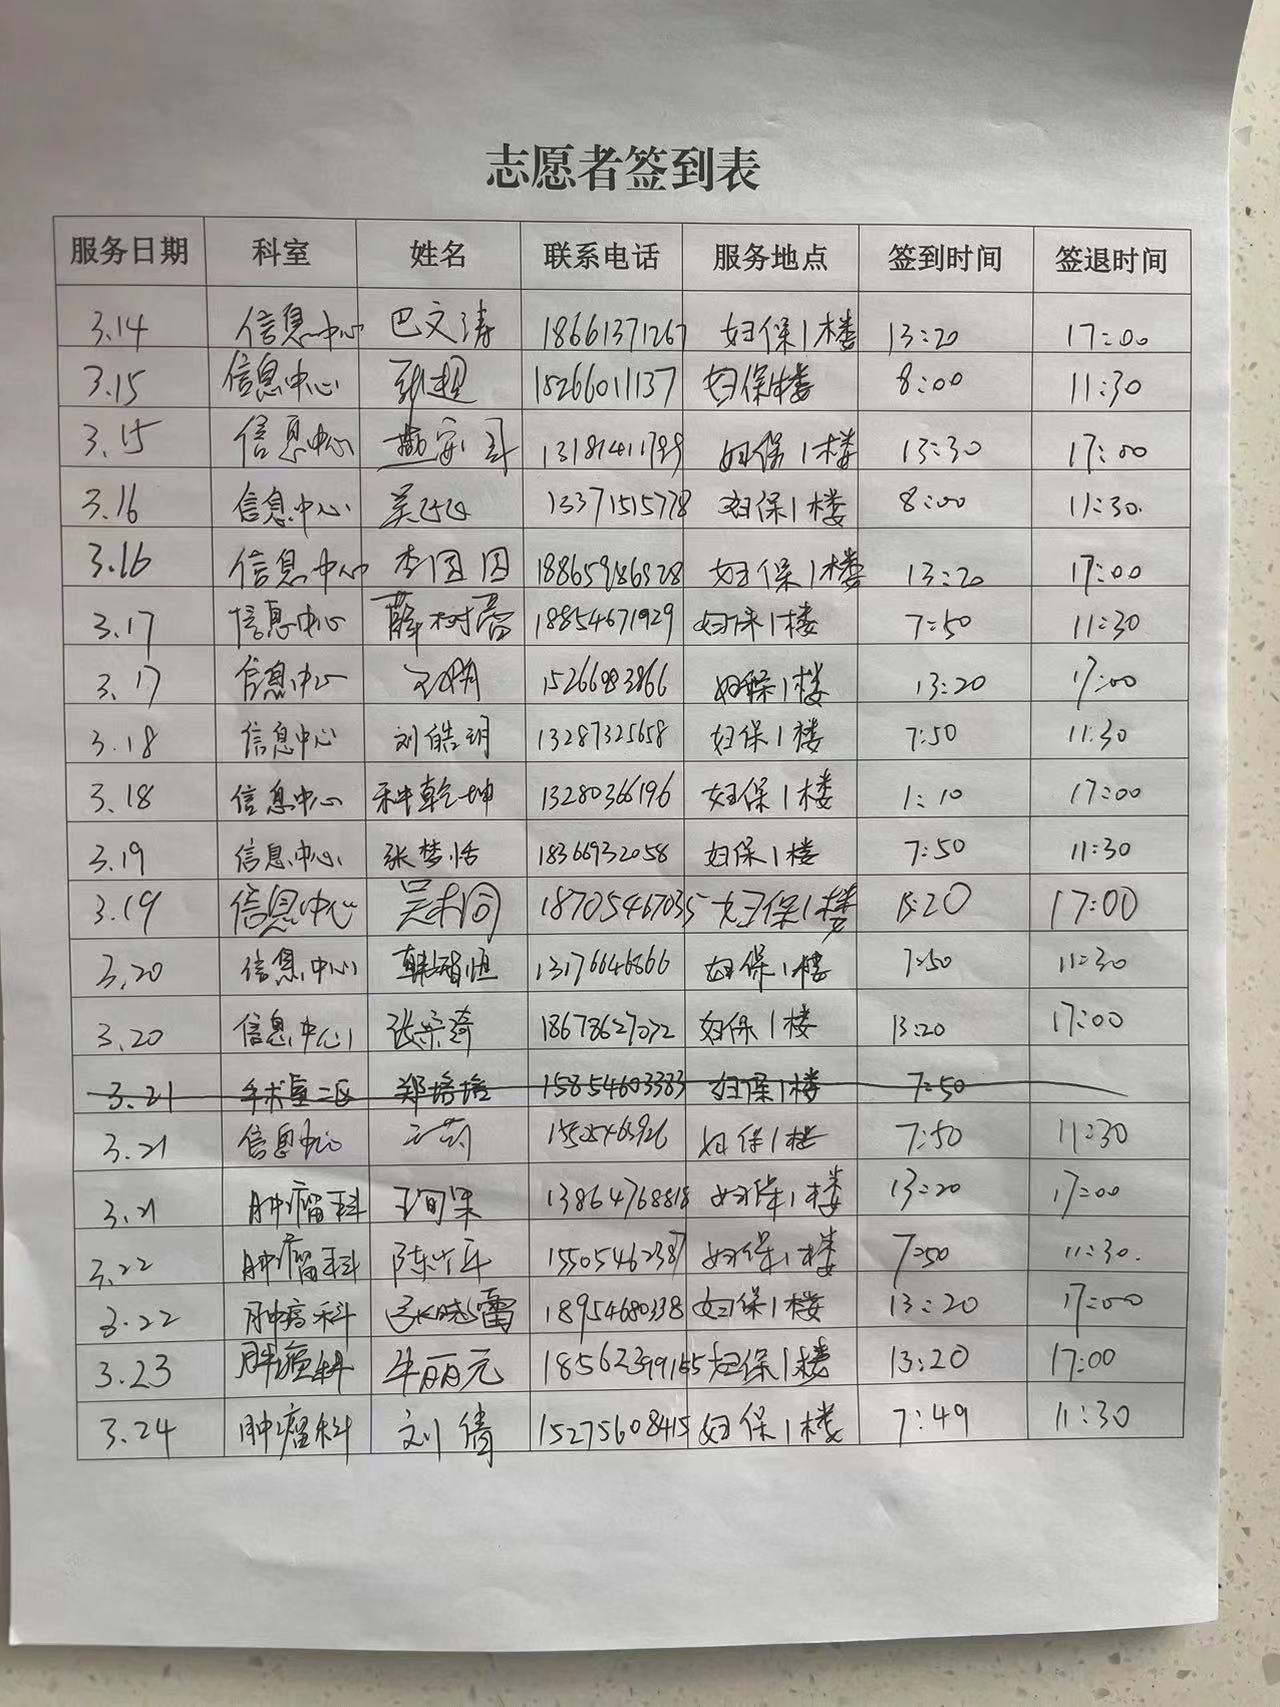 志愿者签到表
服务日期 科室 姓名 联系电话 服务地点 签到时间 签退时间
3.14 信息中心 巴文涛 18661371267 妇保1楼 13:20 17:00
3.15 信息中心 张超 18266011137 妇保1楼 8:00 11:30
3.15 信息中心 妇保1楼 13:30 17:00
3.16 信息中心 13371515778 妇保1楼 8:00 11:30.
3.16 信息中心 李团团 妇保1楼 13:20 17:00
3.17 信息中心 18854671929 妇保1楼 7:50 11:30
3.17 信息中心 妇保1楼 13:20 17:00
3.18 信息中心 刘皓玥 13287325658 妇保1楼 7:50 11:30
3.18 信息中心 乾坤 13280366196 妇保1楼 1:10 17:00
3.19 信息中心 张梦恬 18366932058 妇保1楼 7:50 11:30
3.19 信息中心 18705467035 妇保1楼 13:20 17:00
3.20 信息中心 韩智恒 13176646866 妇保1楼 7:50 11:30
3.20 信息中心 18678627072 妇保1楼 13:20 17:00
3.21 手术室二区 郑培培 15854603383 妇保1楼 7:50
3.21 信息中心 妇保1楼 7:50 11:30
3.21 肿瘤科 13864768818 妇保1楼 13:20 17:00
3.22 肿瘤科 15505462387 妇保1楼 7:50 11:30.
3.22 肿瘤科 张晓雷 18954680338 妇保1楼 13:20 17:00
3.23 肿瘤科 牛丽元 18562399165 妇保1楼 13:20 17:00
3.24 肿瘤科 刘倩 15275608415 妇保1楼 7:49 11:30